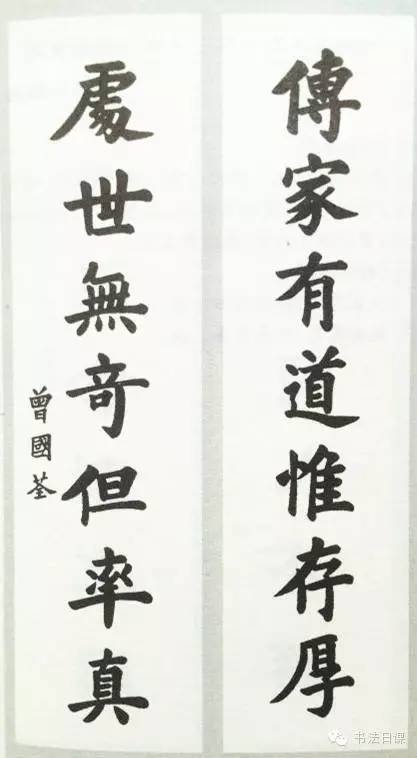 傳家有道惟存厚
處世無奇但率真
曾國荃
书法日课